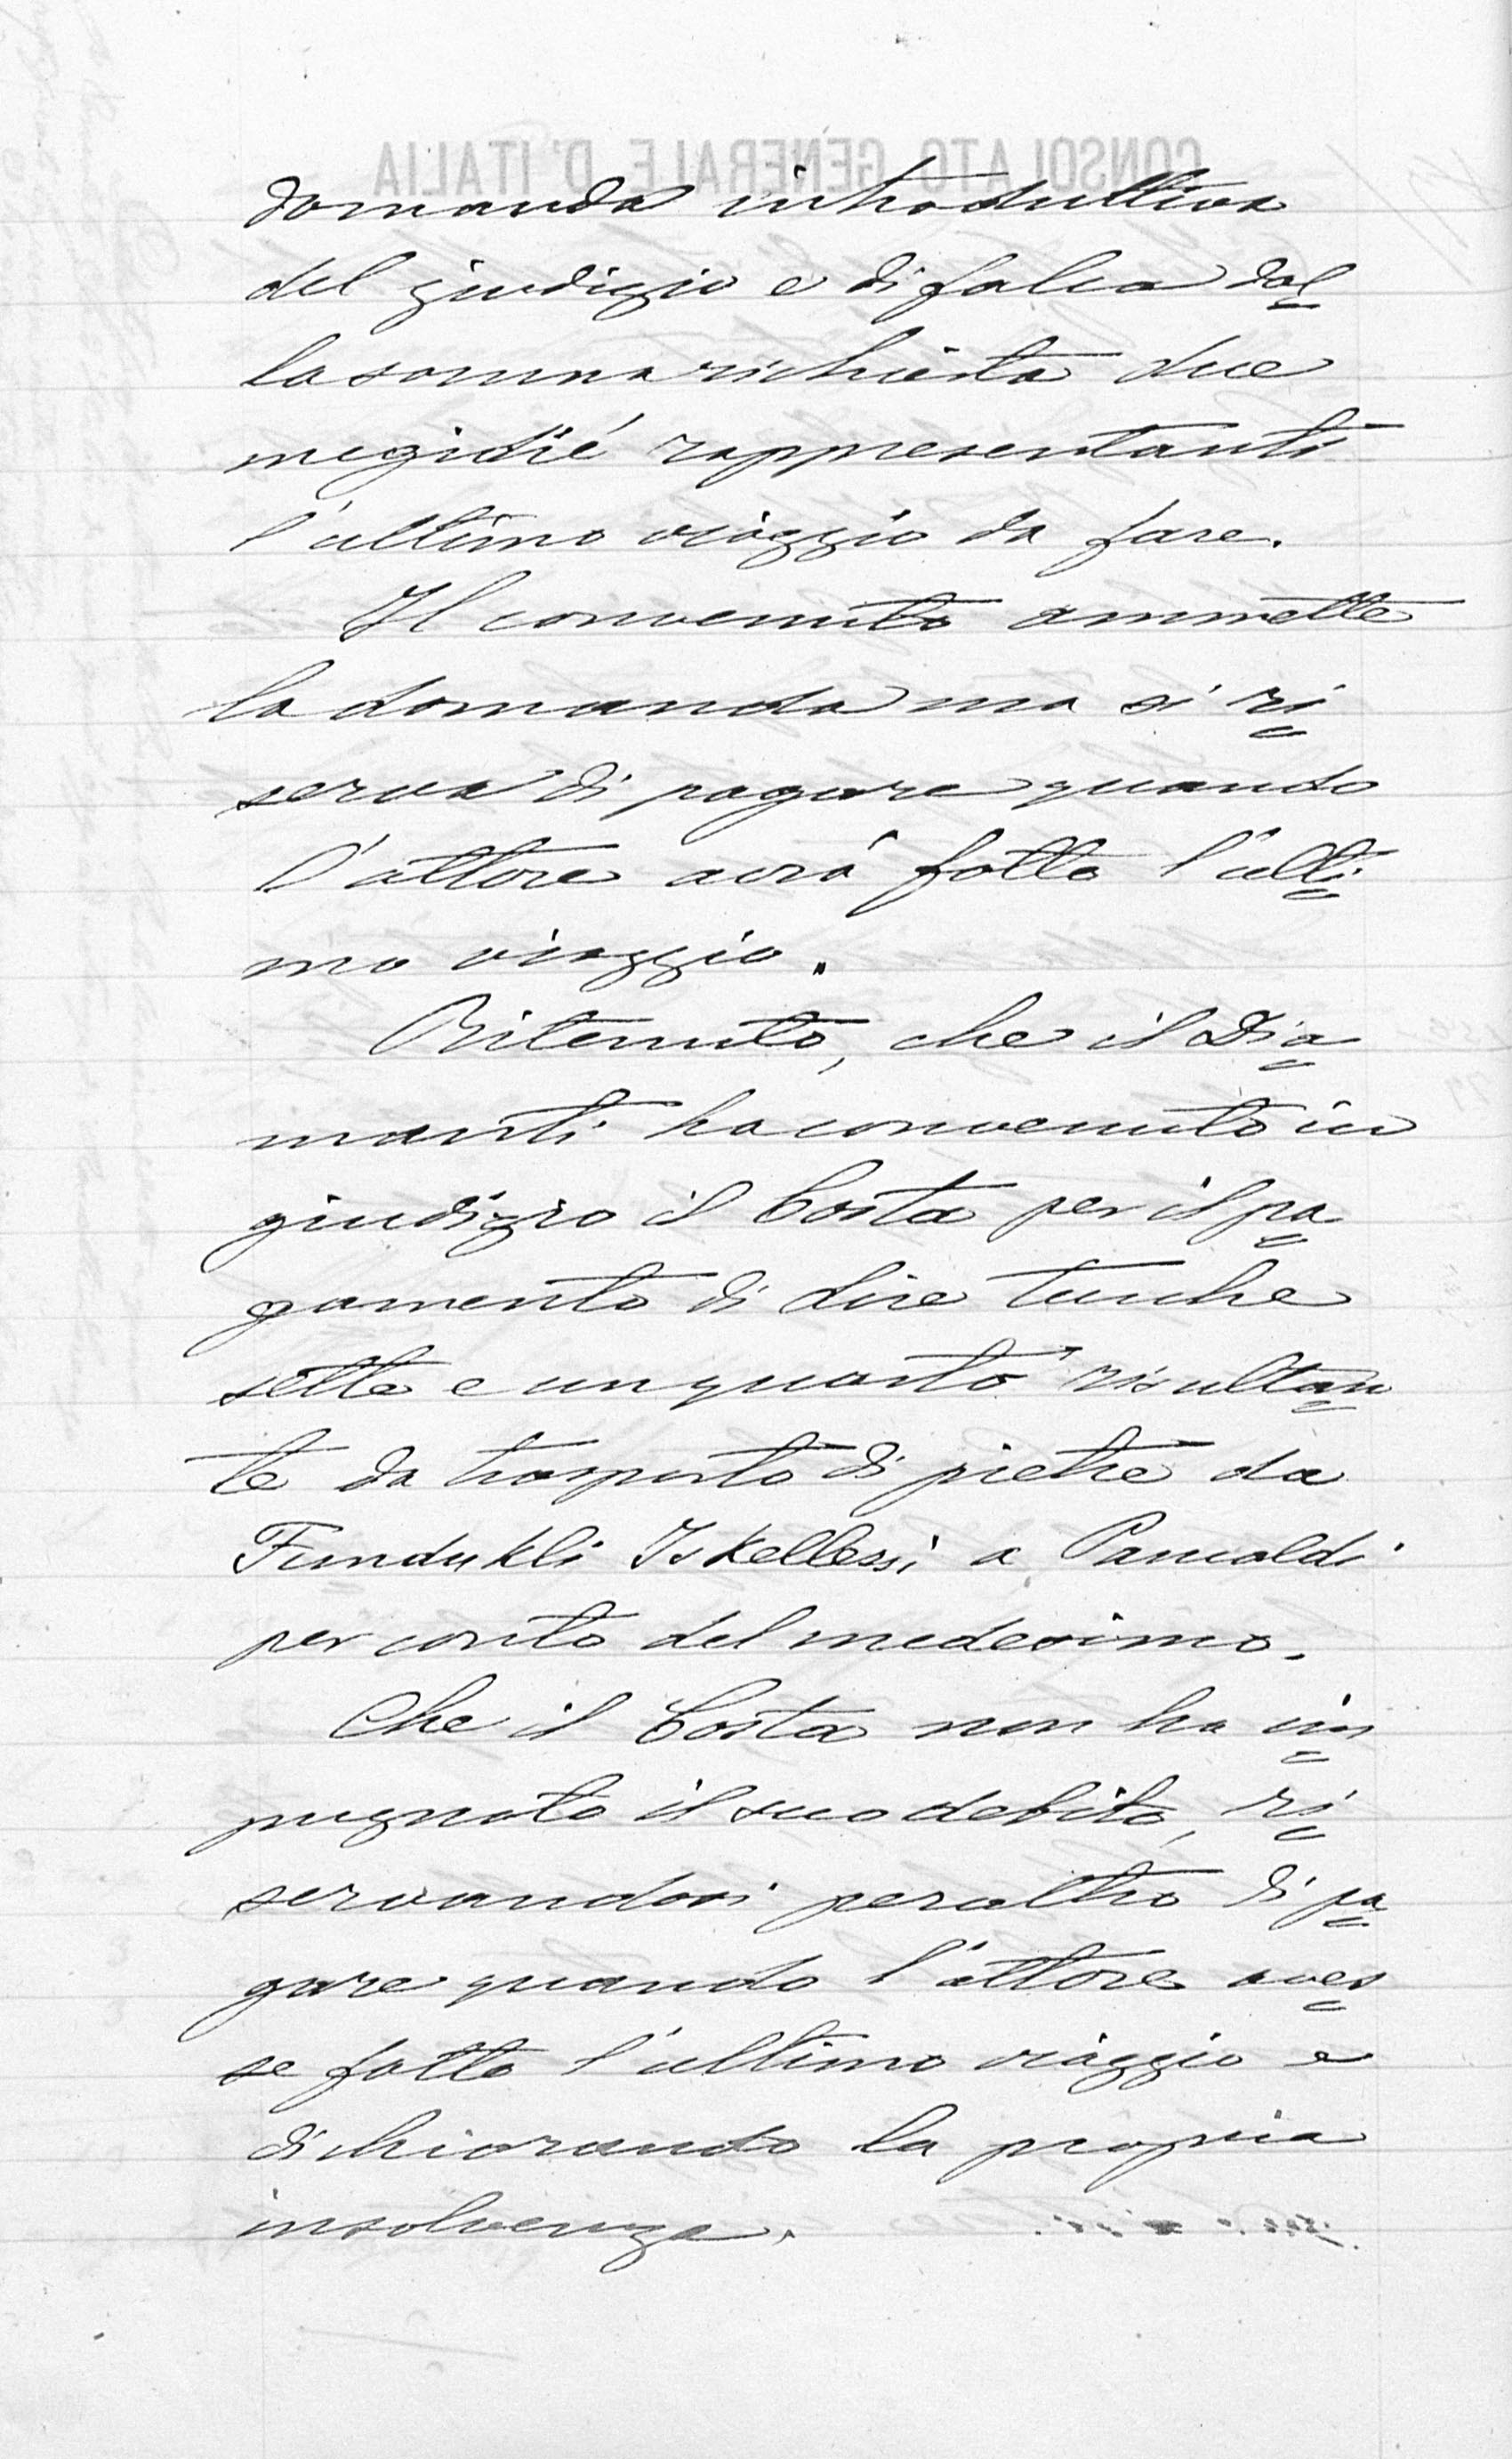 CONSOLATO GENERALE D'ITALIA
domanda introduttiva
del giudizio e difalca dal=
la somma richiesta due
megidié rappresentanti
l'ultimo viaggio da fare.
Il convenuto ammette
la domanda ma si ri=
serva di pagare quando
l'attore avrà fatto l'ulti=
mo viaggio.
Ritenuto, che il Dia=
manti ha convenuto in
giudizio il Costa per il pa=
gamento di Lire turche
sette e un quarto risultan=
te da trasporto di pietre da
Fundukli Iskellessi a Pancaldi
per conto del medesimo.
Che il Costa non ha im=
pugnato il suo debito, ri=
servandosi peraltro di pa=
gare quando l'attore aves=
se fatto l'ultimo viaggio e
dichiarando la propria
insolvenza.